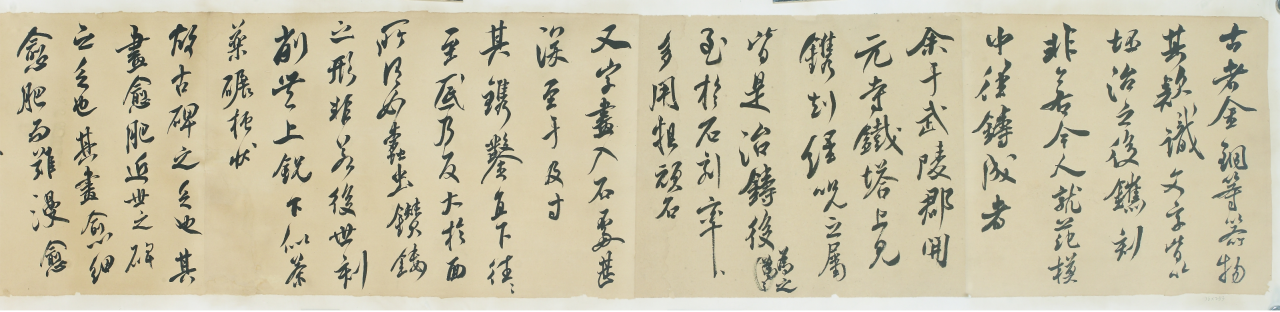 古者金銅等器物
其款識文字皆以
坯冶之後鐫刻
非若今人就范模
中徑鑄成者
余于武陵郡開
元寺鐵塔上見
鐫刻經咒之屬
皆是冶鑄後為之
至於石刻率
多用粗頑石
又字畫入石處甚
深至于及寸
其鐫鑿直下往〻
至底乃反大於面
所謂如蠹蟲鑽鏤
之形非若後世刻
削豐上銳下似茶
藥碾槽狀
故古碑之乏也其
畫愈肥近世之碑
之乏也其畫愈細
愈肥而難漫愈